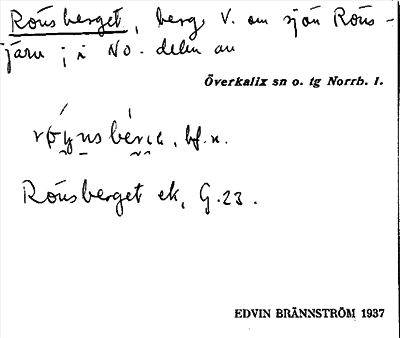 Rönsberget, berg V. om sjön Röns-
järv; i NO. delen av
Överkalix sn o. tg Norrb. l.
bf. n.
Rönsberget ek, G. 23.
EDVIN BRÄNNSTRÖM 1937